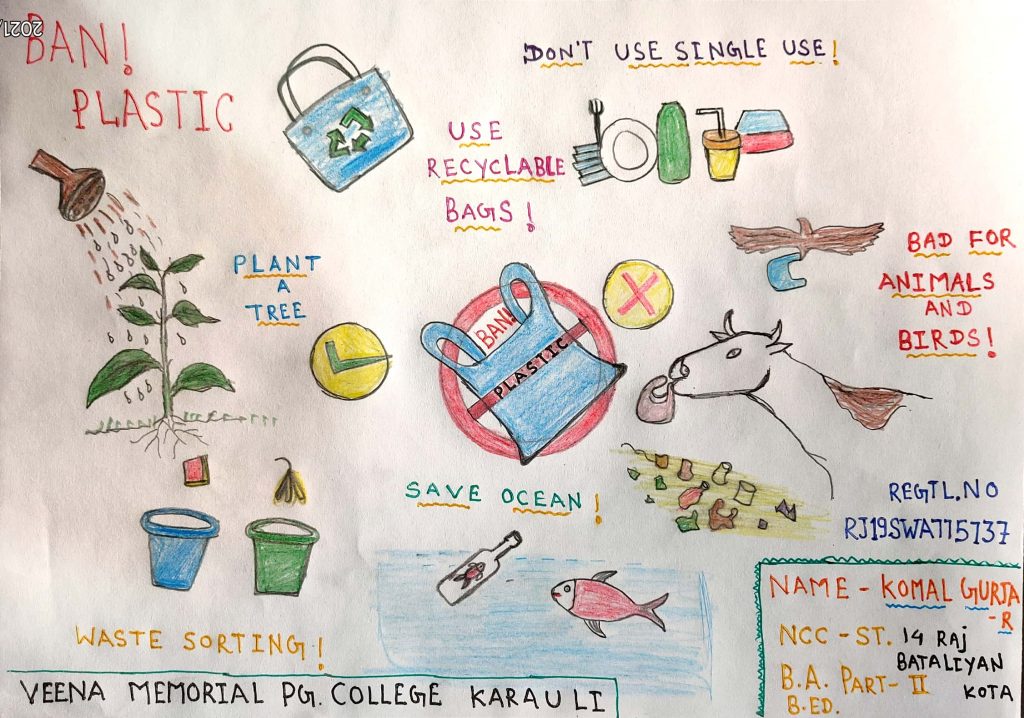 2021/
BAN!
PLASTIC
DON'T USE SINGLE USE!
USE
RECYCLABLE
BAGS!
PLANT
A
TREE
BAN!
PLASTIC
BAD FOR
ANIMALS
AND
BIRDS!
SAVE OCEAN!
REGTL.NO
RJ19SWA775737
WASTE SORTING!
NAME - KOMAL GURJA
-R
NCC - ST. 14 RAJ
BATALIYAN
KOTA
B.A. PART- II
B.ED.
VEENA MEMORIAL PG. COLLEGE KARAULI